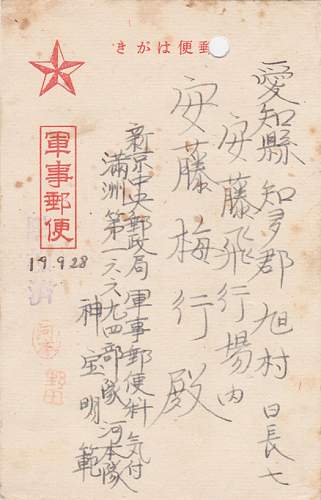 郵便はがき
愛知縣知多郡旭村日長七
安藤飛行場内
安藤梅行殿
軍事郵便
19.9.28
済
新京中央郵政局軍事郵便科気付
満洲第一六六九四部隊河本隊
神宝明範
河本
野田